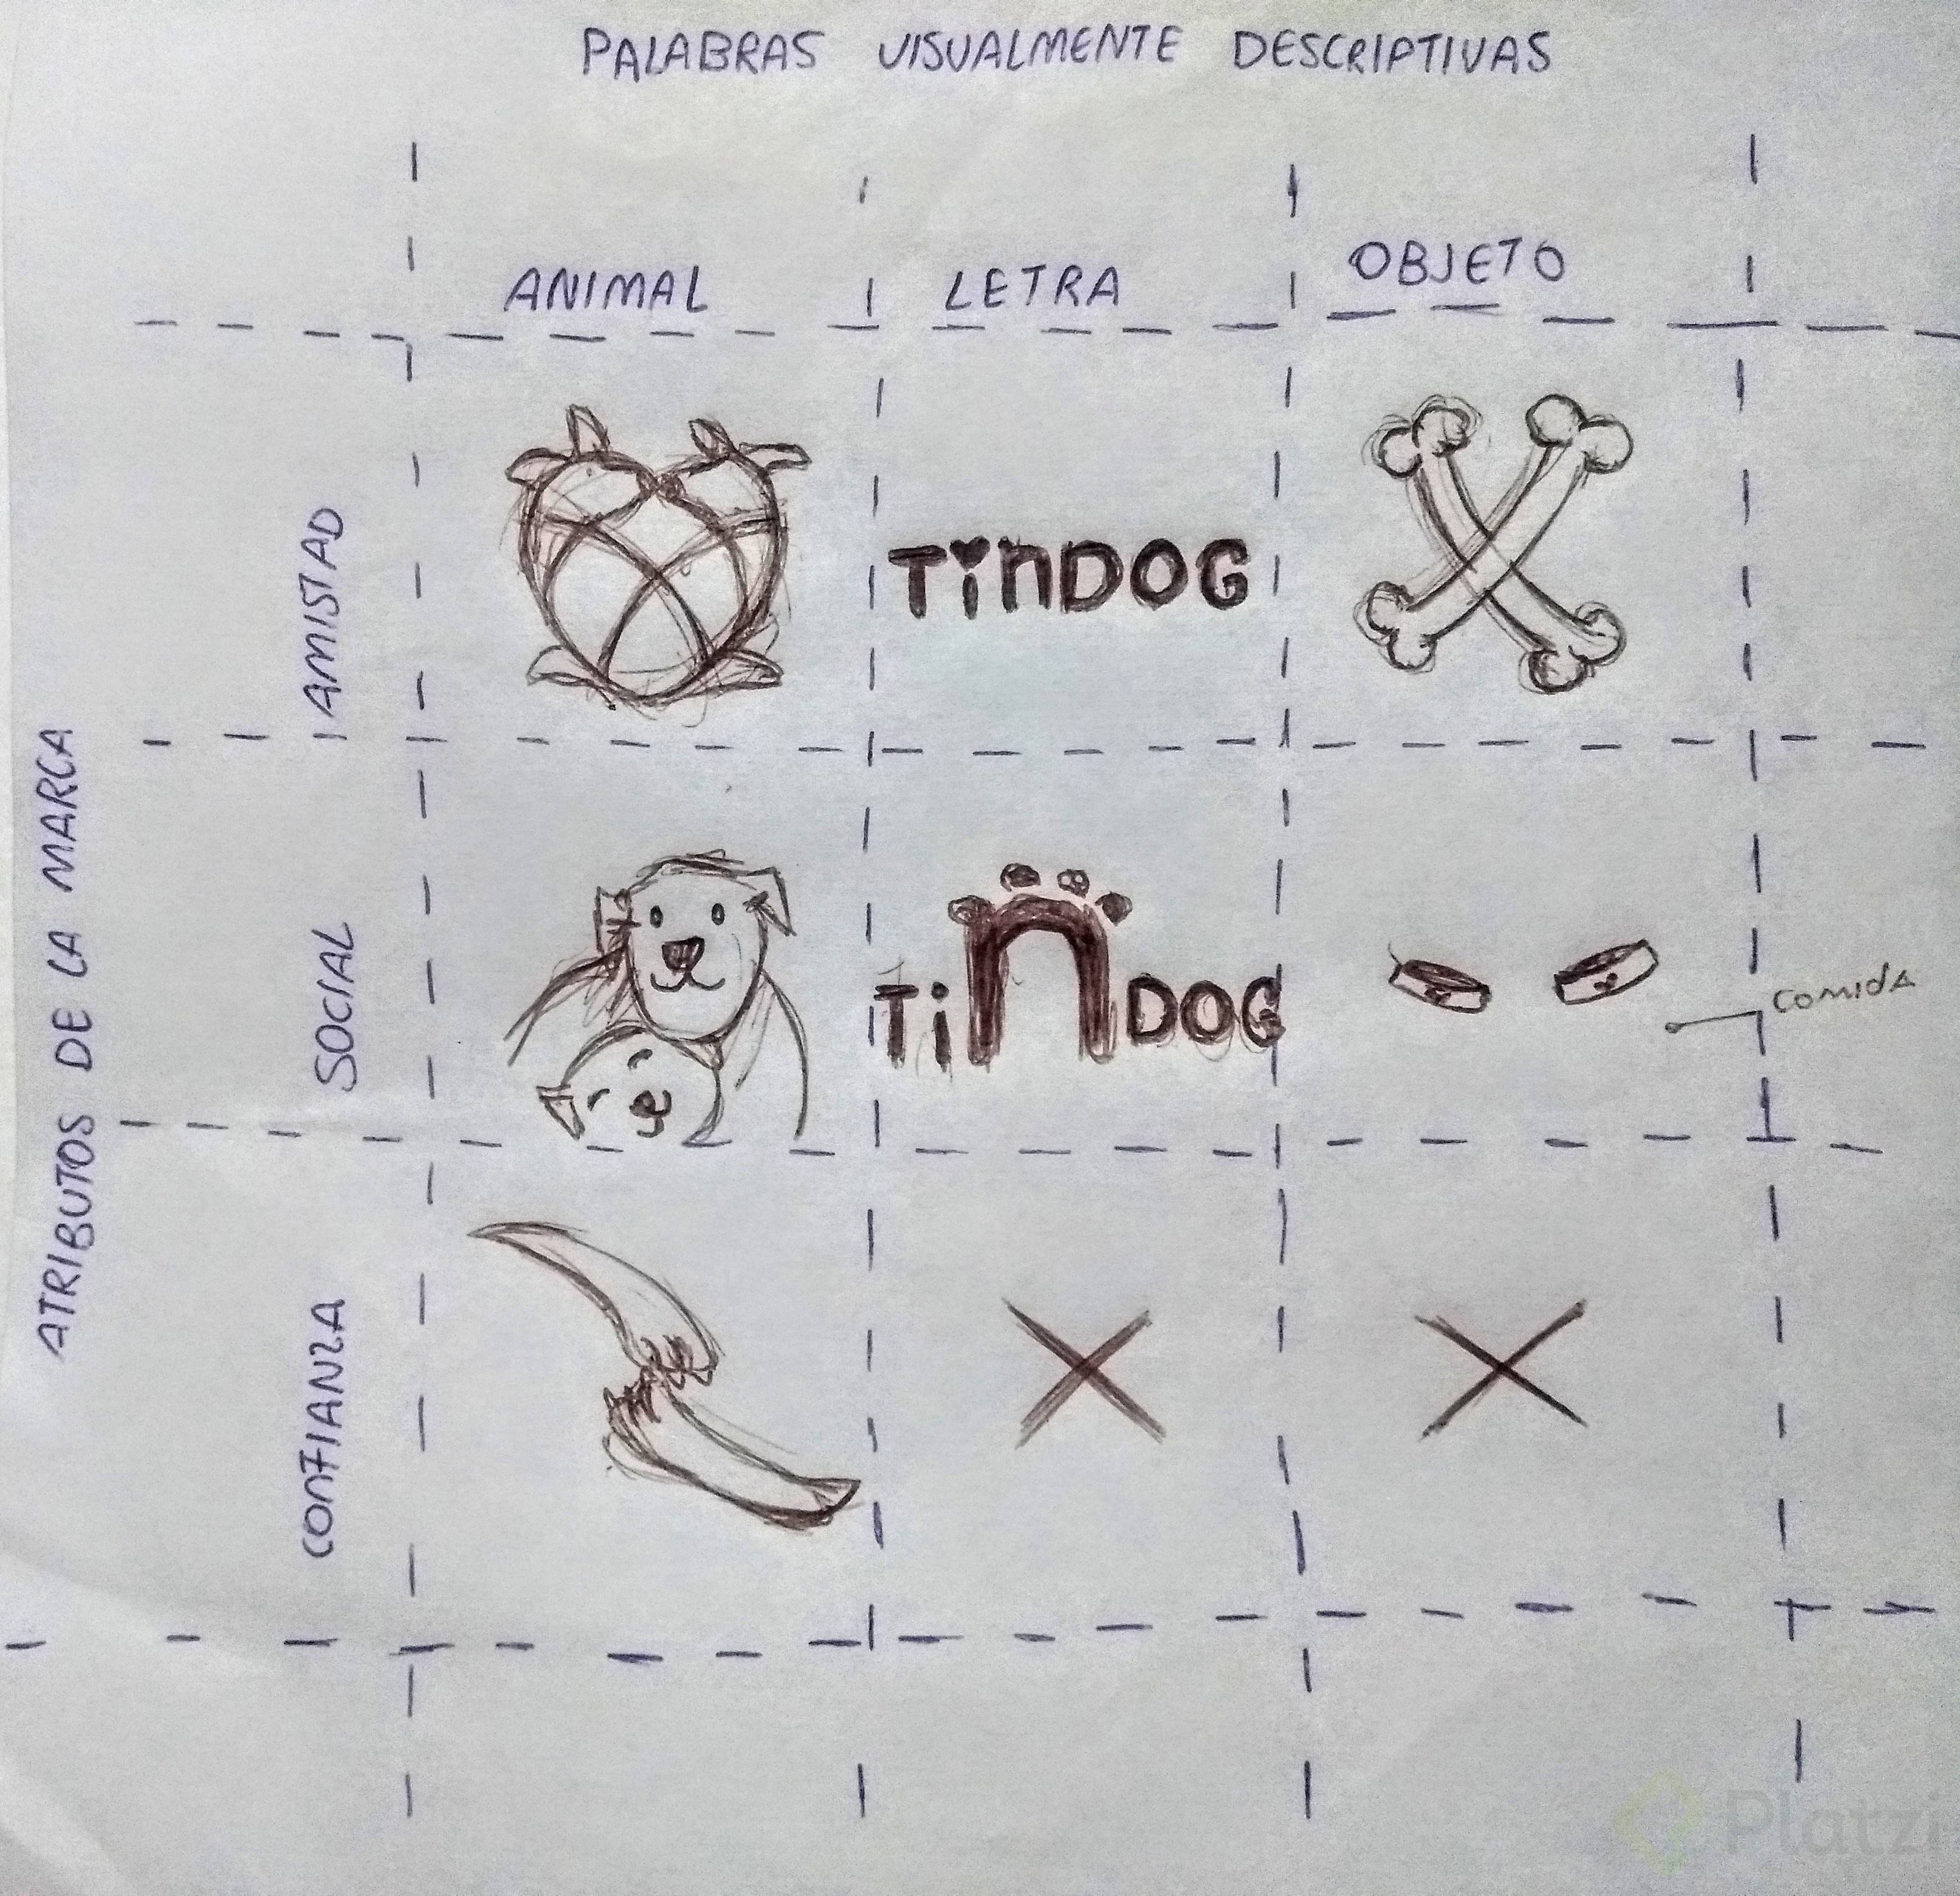 PALABRAS VISUALMENTE DESCRIPTIVAS
ANIMAL LETRA OBJETO
ATRIBUTOS DE LA MARCA
AMISTAD
TinDOG
SOCIAL
TinDOG
COMIDA
CONFIANZA
Platzi